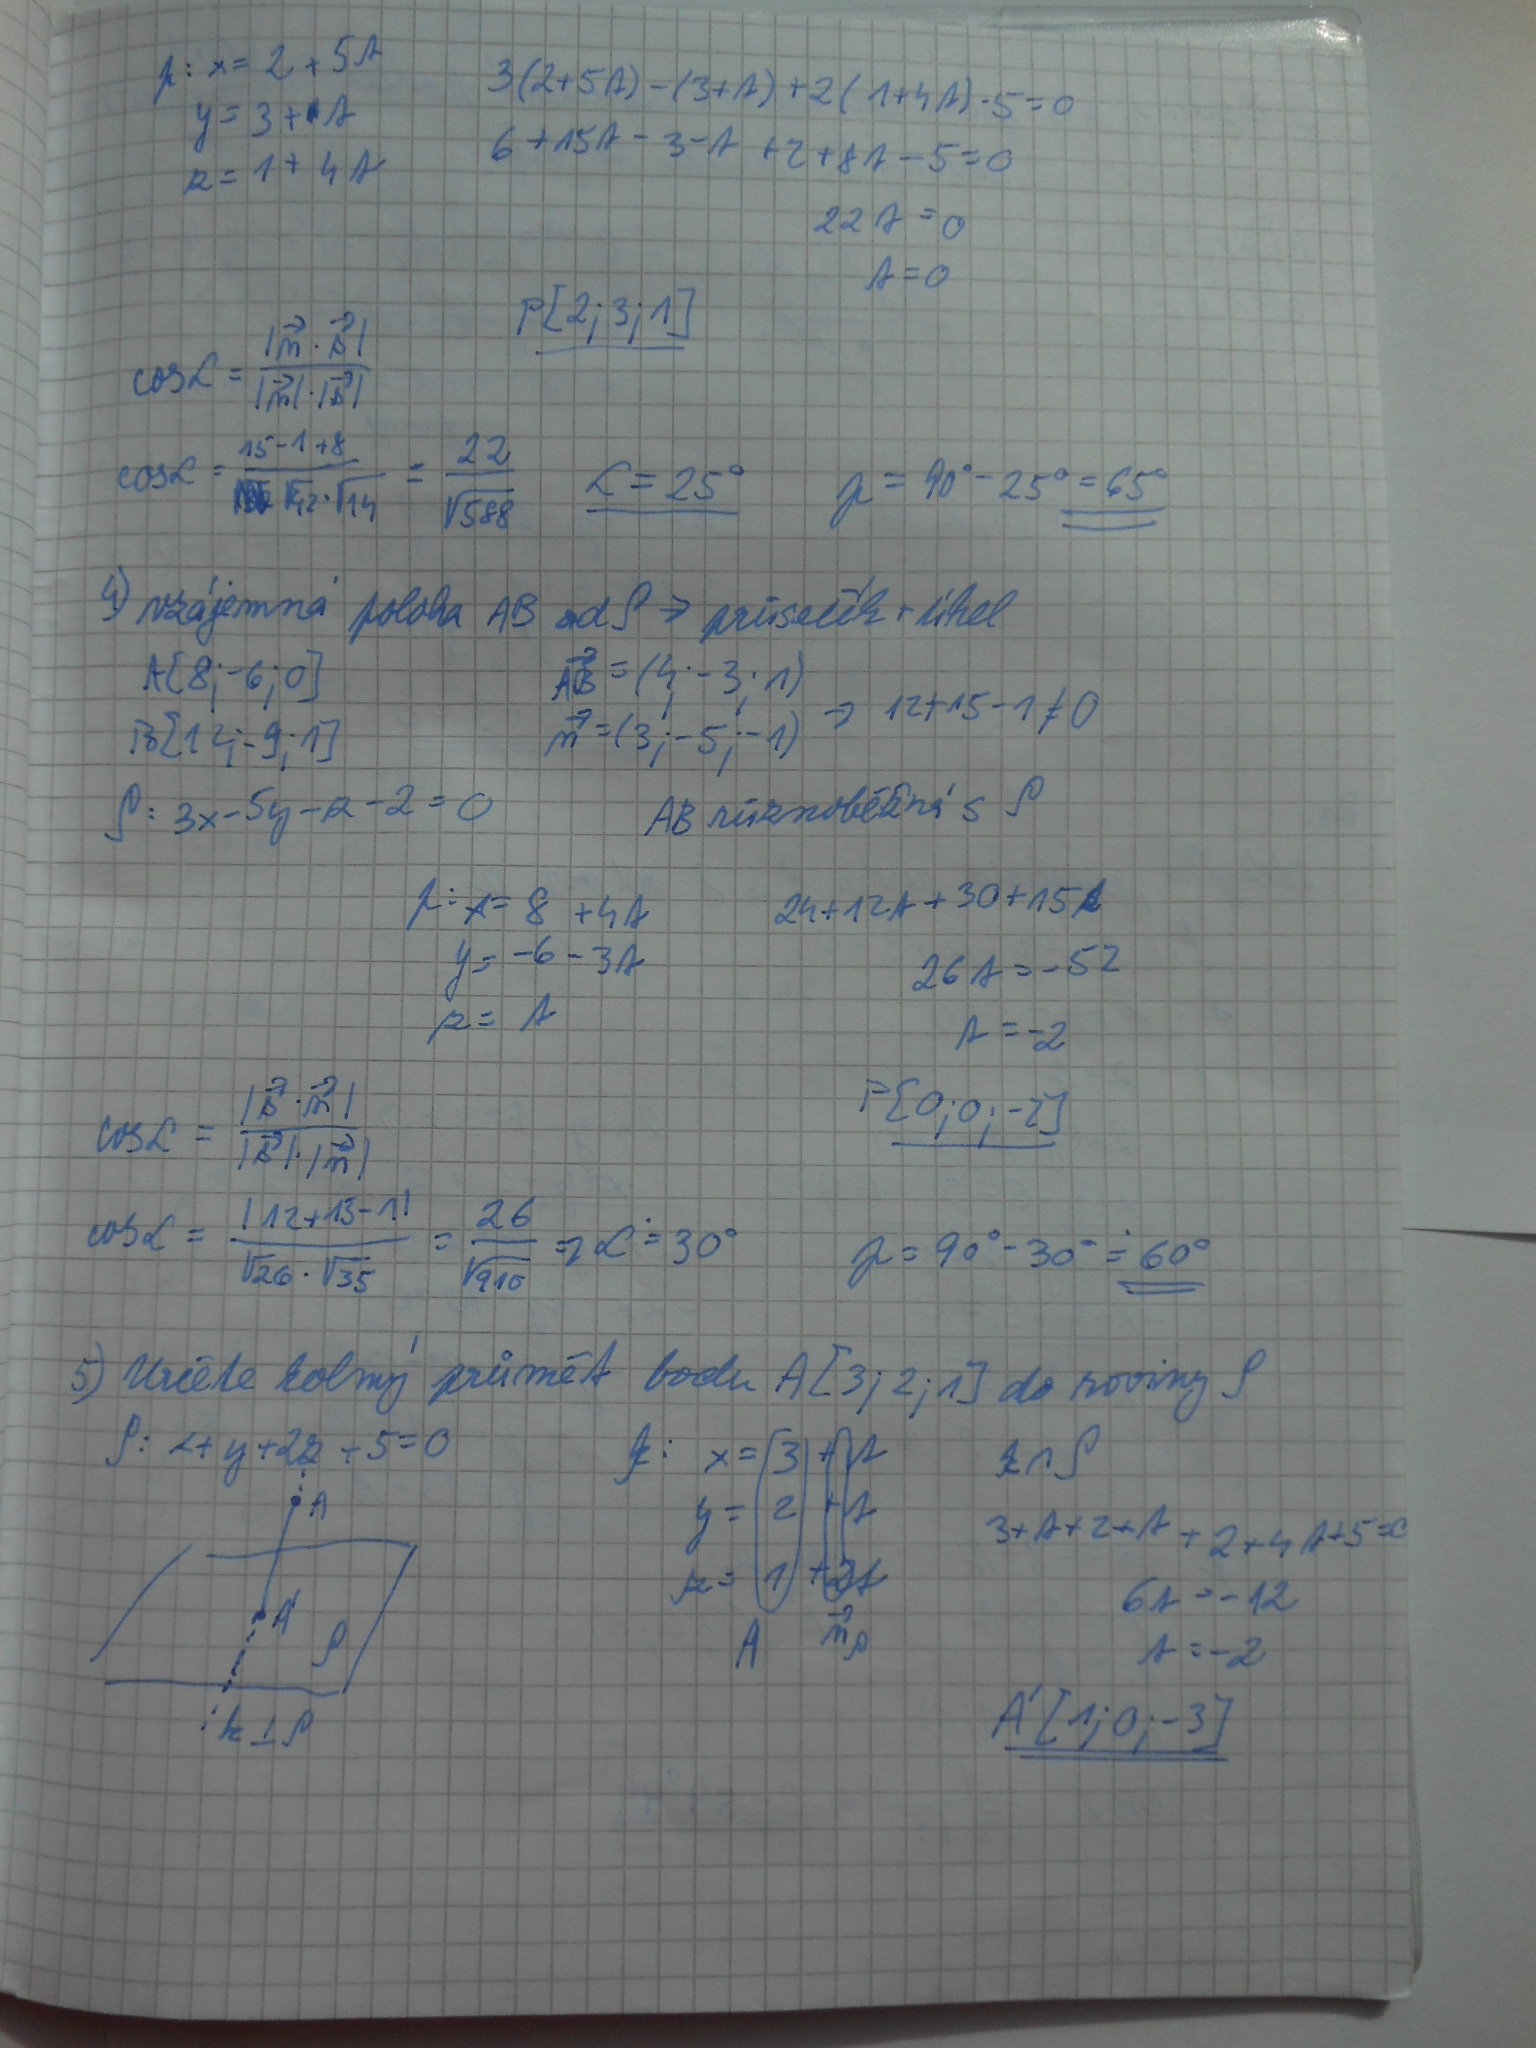 p: x = 2 + 5t
y = 3 + t
z = 1 + 4t
3(2+5t) - (3+t) + 2(1+4t) - 5 = 0
6 + 15t - 3 - t + 2 + 8t - 5 = 0
22t = 0
t = 0
P[2; 3; 1]
cos α = |n⃗ · s⃗| / |n⃗| · |s⃗|
cos α = 15 - 1 + 8 / √42 · √14 = 22 / √588 α = 25° φ = 90° - 25° = 65°
4) vzájemná poloha AB od ρ → průsečík + úhel
A[8; -6; 0] AB⃗ = (4; -3; 1)
B[12; -9; 1] n⃗ = (3; -5; -1) → 12 + 15 - 1 ≠ 0
ρ: 3x - 5y - z - 2 = 0 AB různoběžná s ρ
p: x = 8 + 4t 24 + 12t + 30 + 15t
y = -6 - 3t 26t = -52
z = t t = -2
P[0; 0; -2]
cos α = |s⃗ · n⃗| / |s⃗| · |n⃗|
cos α = |12 + 15 - 1| / √26 · √35 = 26 / √910 ⇒ α ≐ 30° φ = 90° - 30° ≐ 60°
5) Určete kolmý průmět bodu A[3; 2; 1] do roviny ρ
ρ: x + y + 2z + 5 = 0
k: x = 3 + t
y = 2 + t
z = 1 + 2t
A n⃗ρ
k ∩ ρ
3 + t + 2 + t + 2 + 4t + 5 = 0
6t = -12
t = -2
A'[1; 0; -3]
A
A'
ρ
k ⊥ ρ